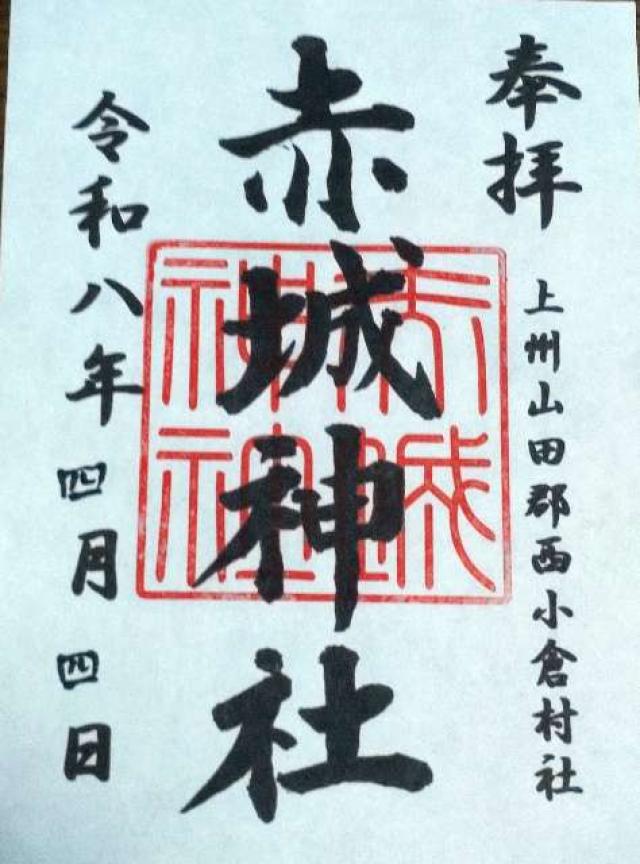 奉拝
上州山田郡西小倉村社
赤城神社
赤城神社
令和八年四月四日